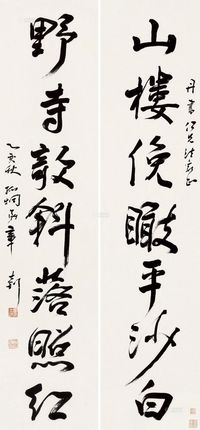 丹書仁兄法家正
山樓俛瞰平沙白
野寺欹斜落照紅
乙亥秋孤桐弟章士釗